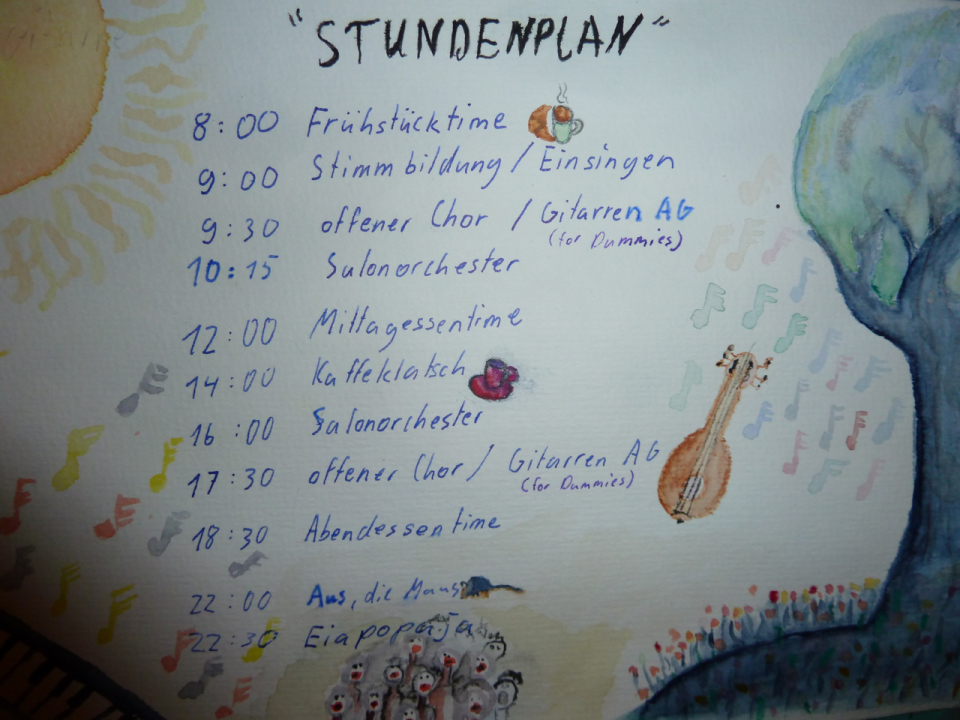 "STUNDENPLAN"
8:00 Frühstücktime
9:00 Stimmbildung / Einsingen
9:30 offener Chor / Gitarren AG
(for Dummies)
10:15 Salonorchester
12:00 Mittagessentime
14:00 Kaffeklatsch
16:00 Salonorchester
17:30 offener Chor / Gitarren AG
(for Dummies)
18:30 Abendessentime
22:00 Aus, die Maus
22:30 Eiapopaja